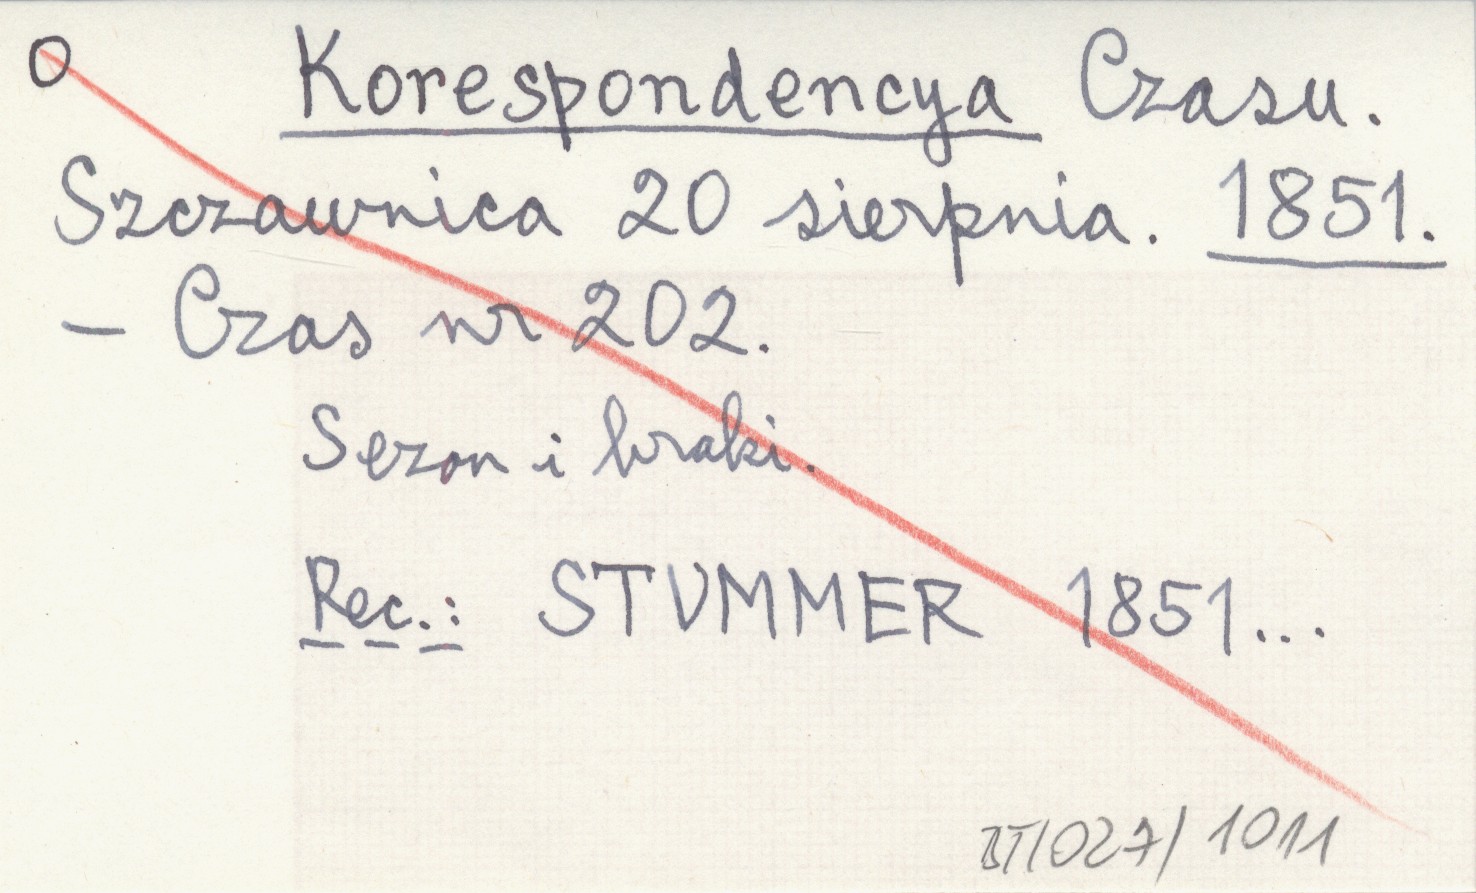 O Korespondencya Czasu.
Szczawnica 20 sierpnia. 1851.
– Czas nr 202.
Sezon i braki.
Rec.: STUMMER 1851...
BT/027/1011